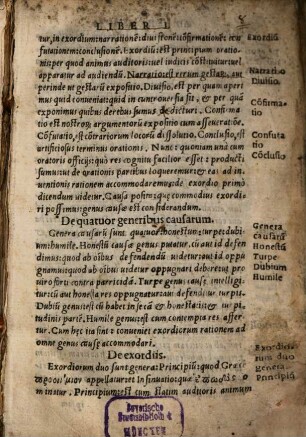 LIBER I.
tur, in exordium: in narrationē: divisionē: cōfirmationē: cō
futationem: conclusionē. Exordiū est principium oratio
nis: per quod animus auditoris vel iudicis cōstituitur vel
apparatur ad audiendū. Narratio est rerum gestarum aut
perinde ut gestarū expositio. Divisio, est per quam aperi
mus quid conveniat: quid in controversia sit, & per quā
exponimus quibus de rebus simus dicturi. Confirma
tio est nostrorum argumentorū expositio cum asseveratiōe.
Cōfutatio, est cōtrariorum locorū dissolutio. Conclusio, est
artificiosus terminus orationis. Nunc quoniam unā cum
oratoris officijs: quo res cognitu facilior esset: producti
sumus ut de orationis partibus loqueremur: & eas ad in
ventionis rationem accommodaremus: de exordio primo
dicendum videtur. Causa posita: quo commodius exordi
ri possimus: genus causæ est considerandum.
De quatuor generibus causarum.
Genera causarū sunt quatuor: honestum: turpe: dubiu
um: humile. Honestū causæ genus putatur, cū aut id defen
dimus: quod ab oībus defendendū videtur: aut id oppu
gnamus: quod ab oībus videtur oppugnari debere: ut pro
viro forti contra parricidā. Turpe genus causæ intelligi
tur: cū aut honesta res oppugnatur: aut defenditur turpis.
Dubiū genus est: cū habet in se cā & honestatis: & tur pi
tudinis partē. Humile genus est cum contempta res asser
tur. Cum hęc ita sint: conveniet exordiorum rationem ad
omne genus causæ accommodari.
De exordiis.
Exordiorum duo sunt genera: Principiū: quod Græce
appellatur: et insinuatio: quæ
minatur. Principium: est cum statim auditoris animum
Exordiū
Narratio
Divisio.
Cōfirma
tio
Confuta
tio
Cōclusio
Genera
causarū
Honestū
Turpe
Dubium
Humile
Exordio
rum duo
genera
Principiū
Bayerische
Staatsbibliothek
MÜNCHEN